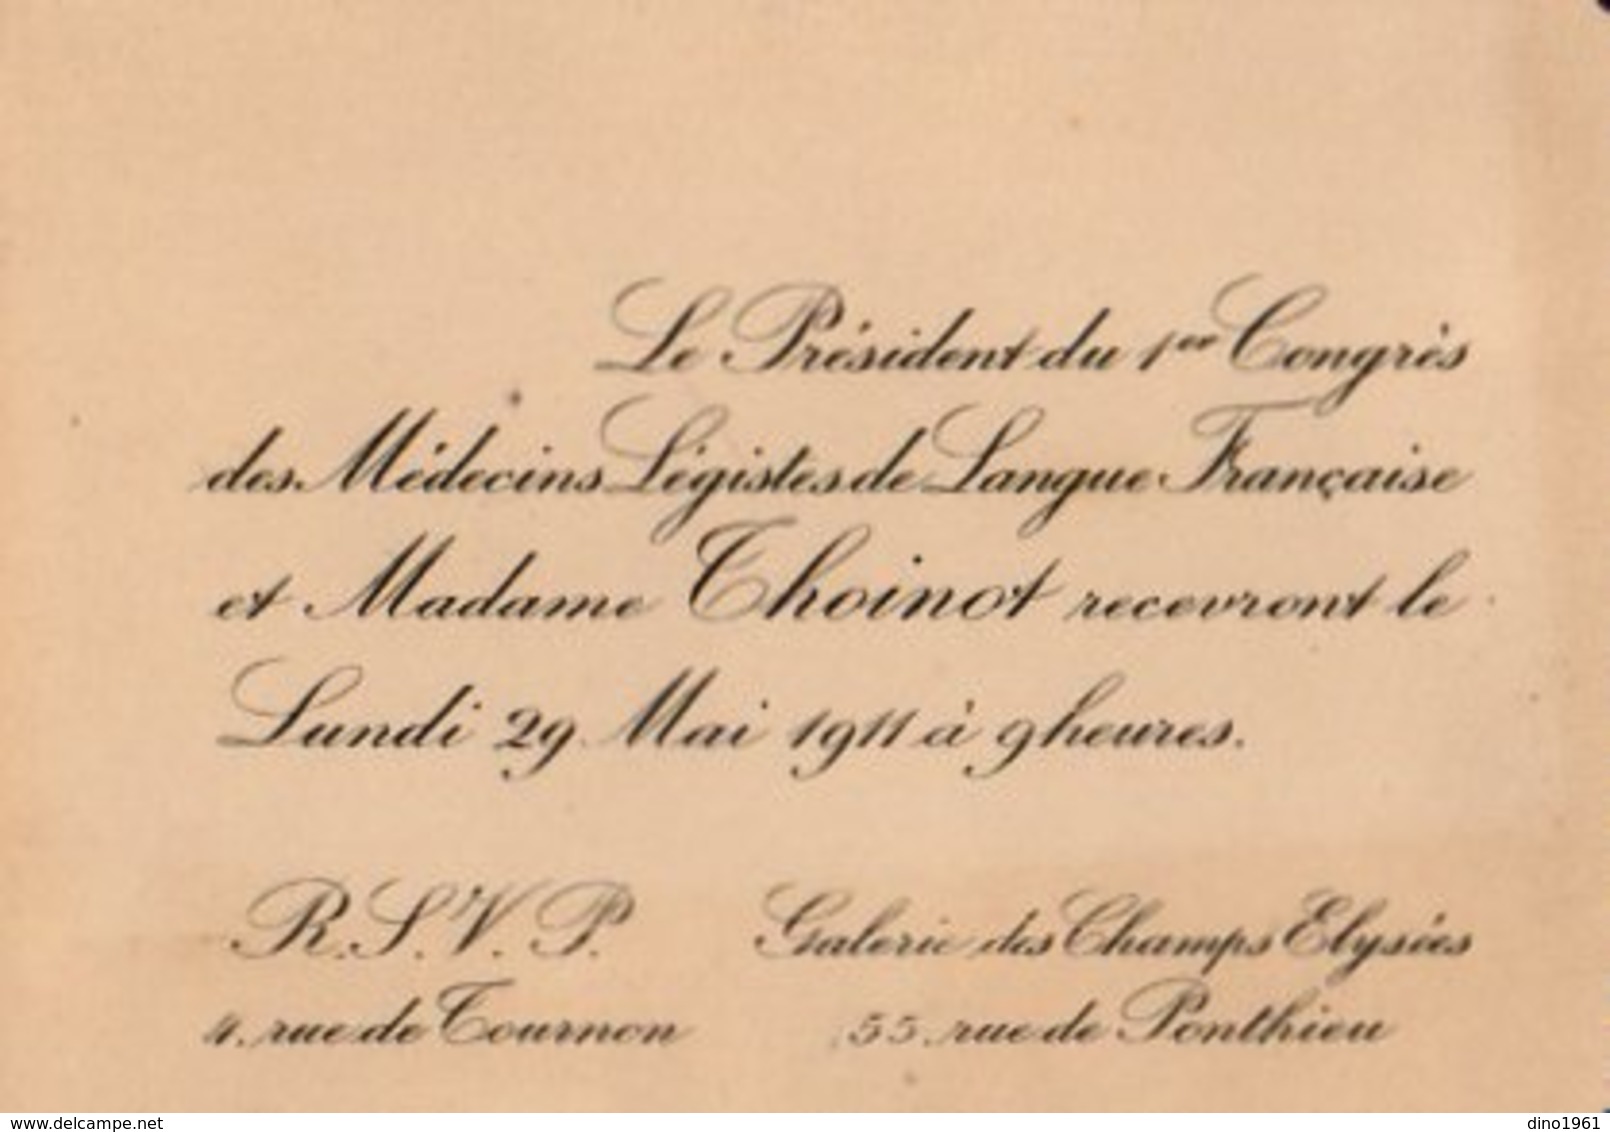 Le Président du 1er Congrès
des Médecins Légistes de Langue Française
et Madame Thoinot recevront le
Lundi 29 Mai 1911 à 9 heures.
R.S.V.P.
4, rue de Tournon
Galerie des Champs Elysées
55, rue de Ponthieu
www.delcampe.net
dino1961